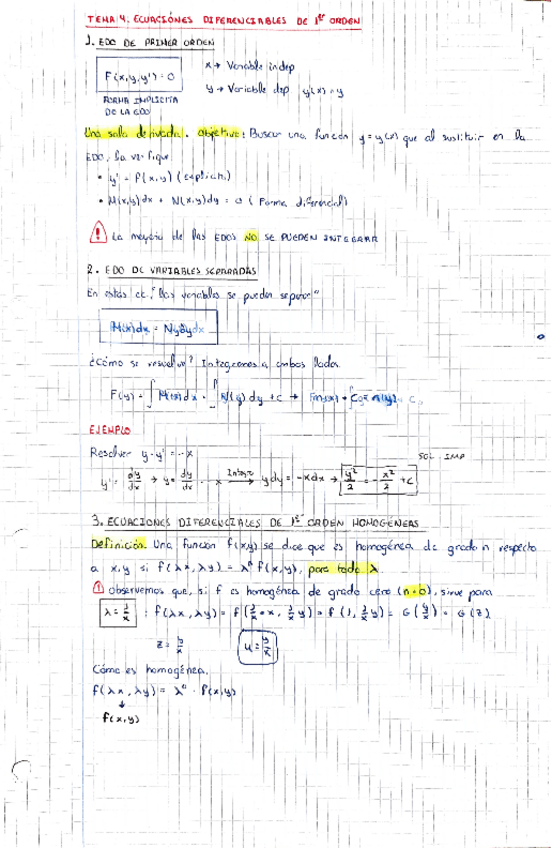 TEMA 4. ECUACIONES DIFERENCIABLES DE 1er ORDEN
1. EDO DE PRIMER ORDEN
F(x,y,y') = 0
x → Variable indep
y → Variable dep y(x) = y
FORMA IMPLICITA
DE LA EDO
Una sola derivada. Objetivo: Buscar una función y = y(x) que al sustituir en la
EDO, la verifique
• y' = f(x,y) (explícita)
• M(x,y)dx + N(x,y)dy = 0 (Forma diferencial)
⚠ La mayoría de las EDOs NO SE PUEDEN INTEGRAR
2. EDO DE VARIABLES SEPARADAS
En estas ec. "las variables se pueden separar"
M(x)dx = N(y)dy
¿Cómo se resuelve? Integramos a ambos lados
F(y) = ∫ M(x)dx = ∫ N(y)dy + C →
EJEMPLO
Resolver y·y' = -x
SOL. IMP
y' = dy/dx → y = dy/dx = x Integro → ydy = -xdx → y²/2 = -x²/2 + C
3. ECUACIONES DIFERENCIALES DE 1er ORDEN HOMOGENEAS
Definición. Una función f(x,y) se dice que es homogénea de grado n respecto
a x,y si f(λx, λy) = λⁿ f(x,y), para todo λ.
① observemos que, si f es homogénea de grado cero (n=0), sirve para
λ = 1/x : f(λx, λy) = f(1/x · x, 1/x y) = f(1, 1/x y) = G(y/x) = G(z)
z = y/x u = y/x
Cómo es homogénea.
f(λx, λy) = λ⁰ · f(x,y)
↓
f(x,y)